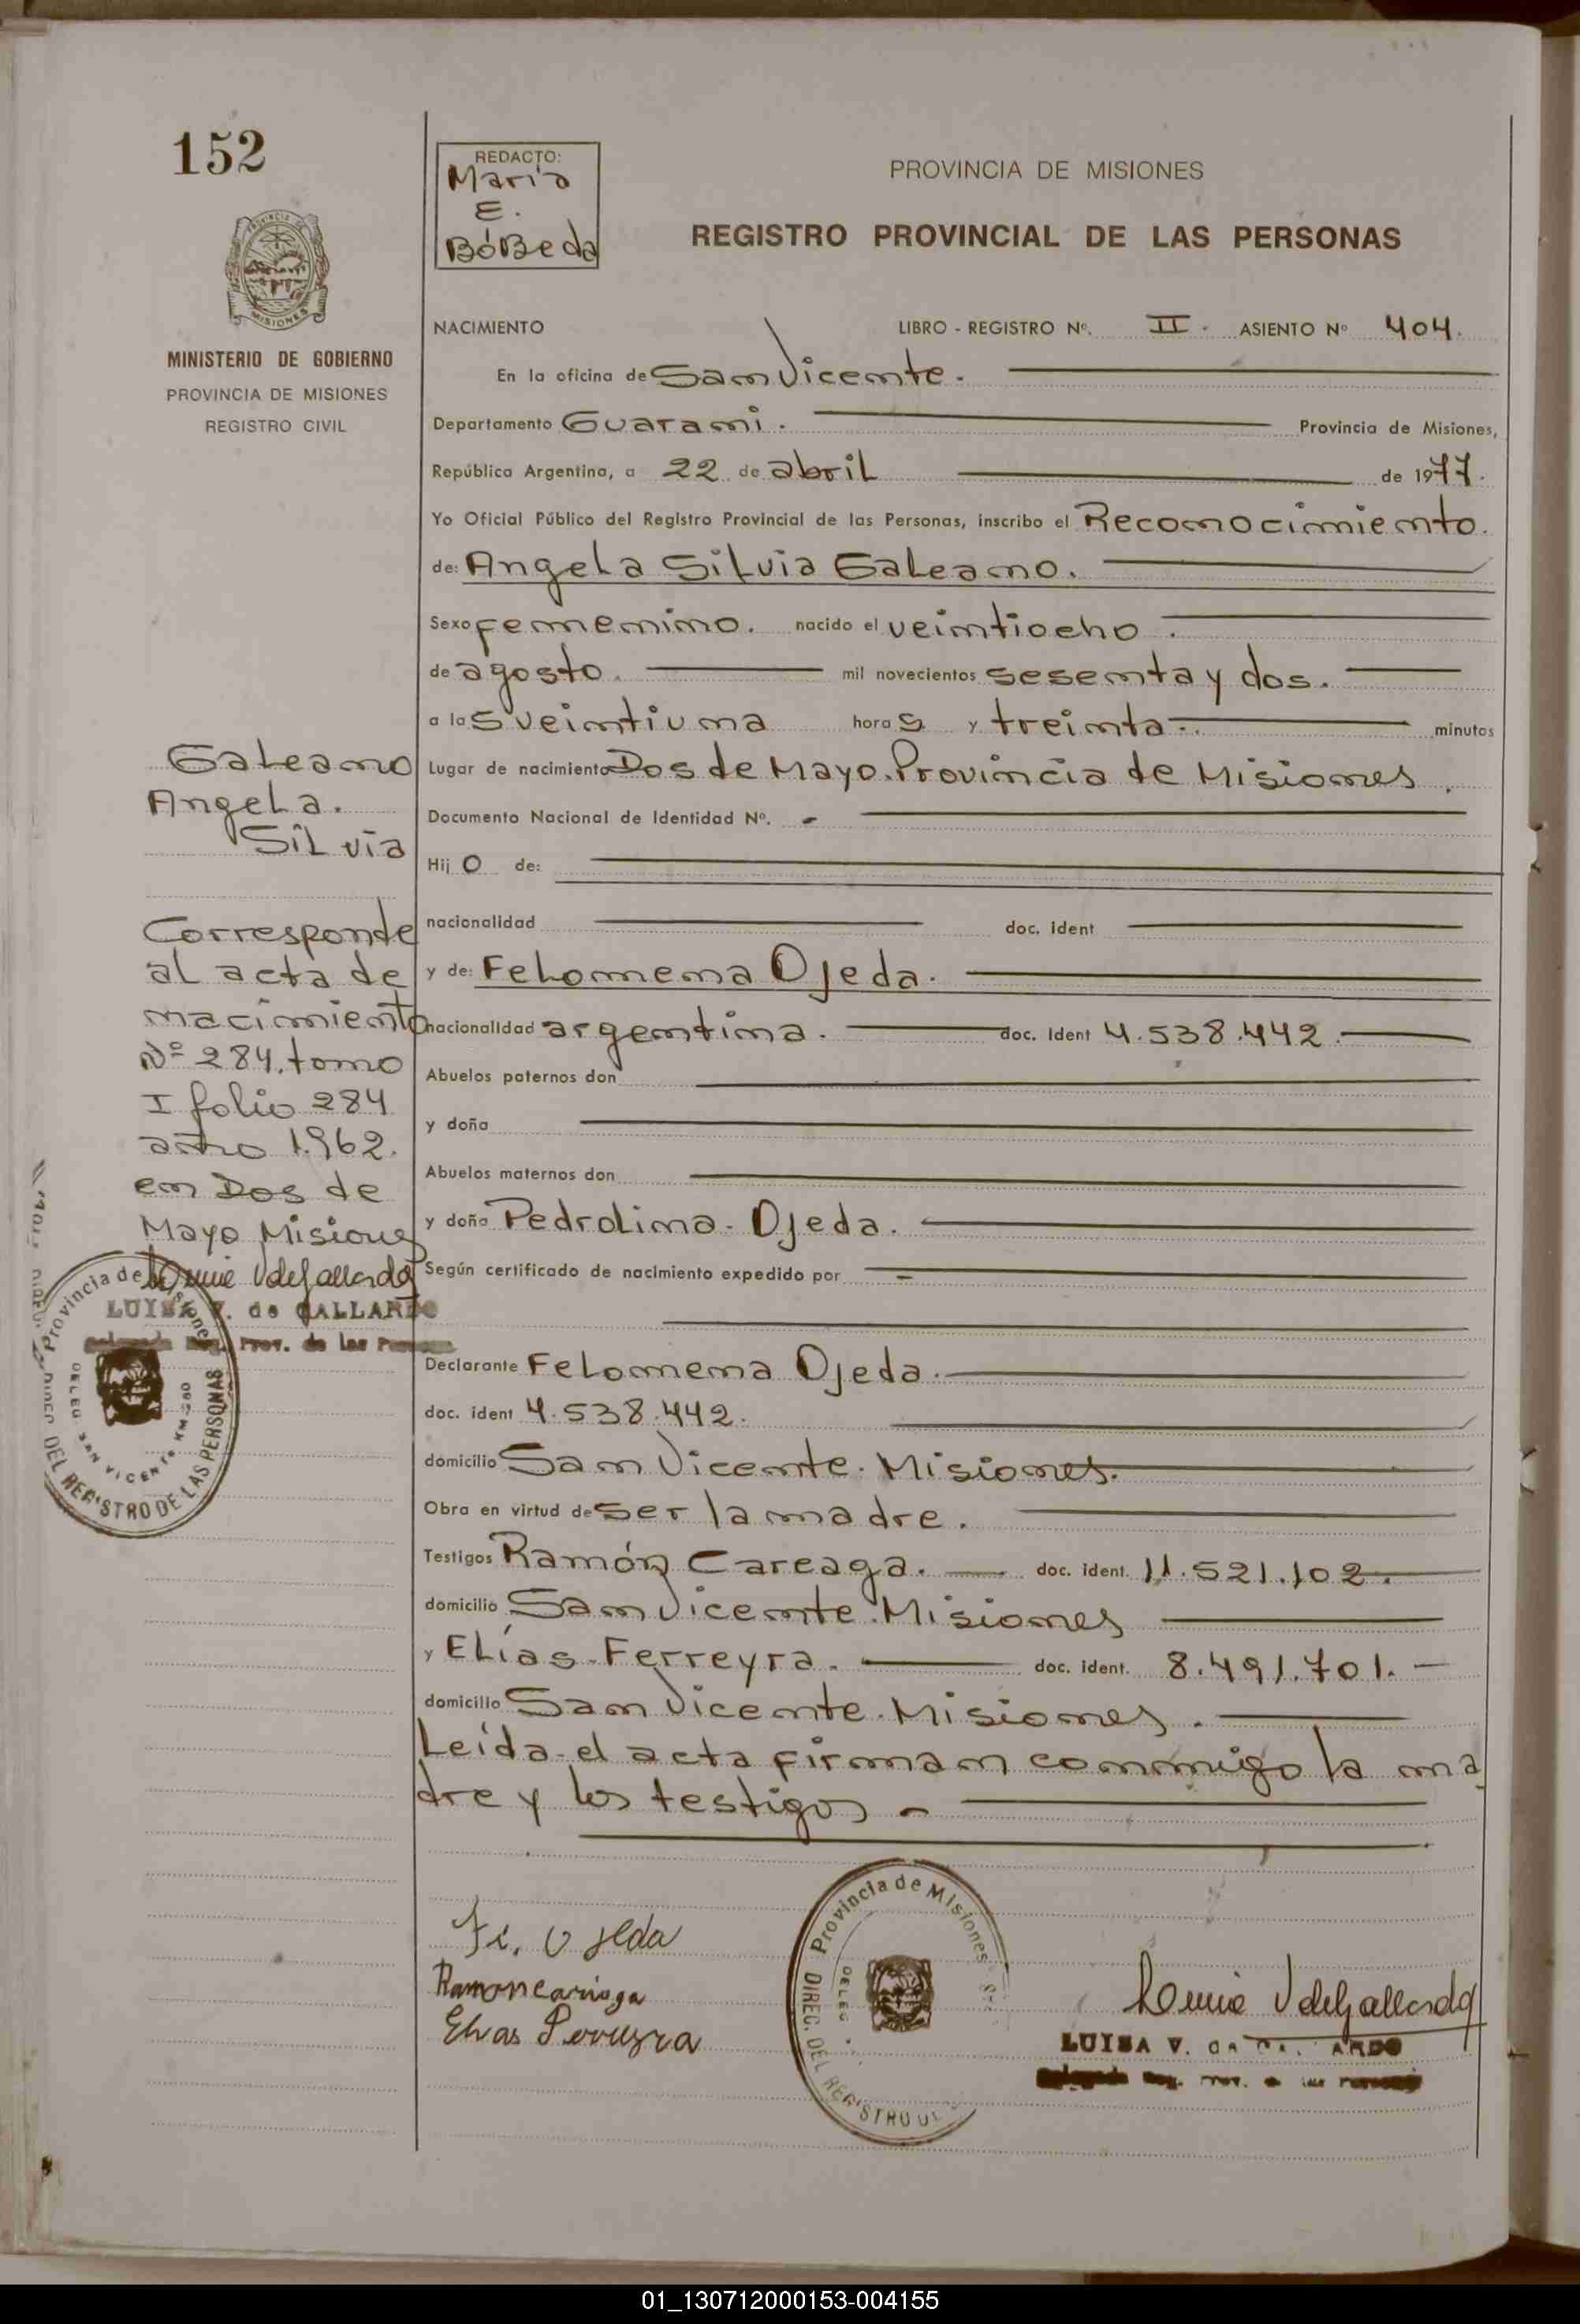 152
REDACTO:
María
E.
BóBeda
PROVINCIA DE MISIONES
REGISTRO PROVINCIAL DE LAS PERSONAS
PROVINCIA
MISIONES
MINISTERIO DE GOBIERNO
PROVINCIA DE MISIONES
REGISTRO CIVIL
NACIMIENTO LIBRO - REGISTRO Nº. II. ASIENTO Nº 404.
En la oficina de San Vicente.
Departamento Guarani. Provincia de Misiones,
República Argentina, a 22 de abril de 1977.
Yo Oficial Público del Registro Provincial de las Personas, inscribo el Reconocimiento.
de: Angela Silvia Galeano.
Sexo femenino. nacido el veintiocho.
de agosto. mil novecientos sesenta y dos.
a las veintiuna horas y treinta. minutos
Lugar de nacimiento Dos de Mayo. Provincia de Misiones.
Documento Nacional de Identidad Nº. -
Hijo de:
nacionalidad doc. ident
y de: Felomena Ojeda.
nacionalidad argentina. doc. Ident 4.538.442.
Abuelos paternos don
y doña
Abuelos maternos don
y doña Pedrolina. Ojeda.
Según certificado de nacimiento expedido por -
Declarante Felomena Ojeda.
doc. ident 4.538.442.
domicilio San Vicente. Misiones.
Obra en virtud de ser la madre.
Testigos Ramón Careaga. doc. ident. 11.521.102.
domicilio San Vicente. Misiones
y Elías Ferreyra. doc. ident. 8.491.701.
domicilio San Vicente. Misiones.
Leída el acta firman conmigo la ma
dre y los testigos -
Galeano
Angela.
Silvia
Corresponde
al acta de
nacimiento
Nº 284. tomo
I folio 284
año 1.962.
en Dos de
Mayo Misiones
Luisa V de Gallardo
LUISA V. de GALLARDO
Delegada Reg. Prov. de las Personas
Provincia de Misiones
DELEG. SAN VICENTE KM-280
DIREC. DEL REGISTRO DE LAS PERSONAS
Fe. Ojeda
Ramon Cariaga
Elias Ferreyra
Provincia de Misiones
DELEG
DIREC. DEL REGISTRO DE
Luisa V de Gallardo
LUISA V. DE GALLARDO
Delegada Reg. Prov. de las Personas
01_130712000153-004155